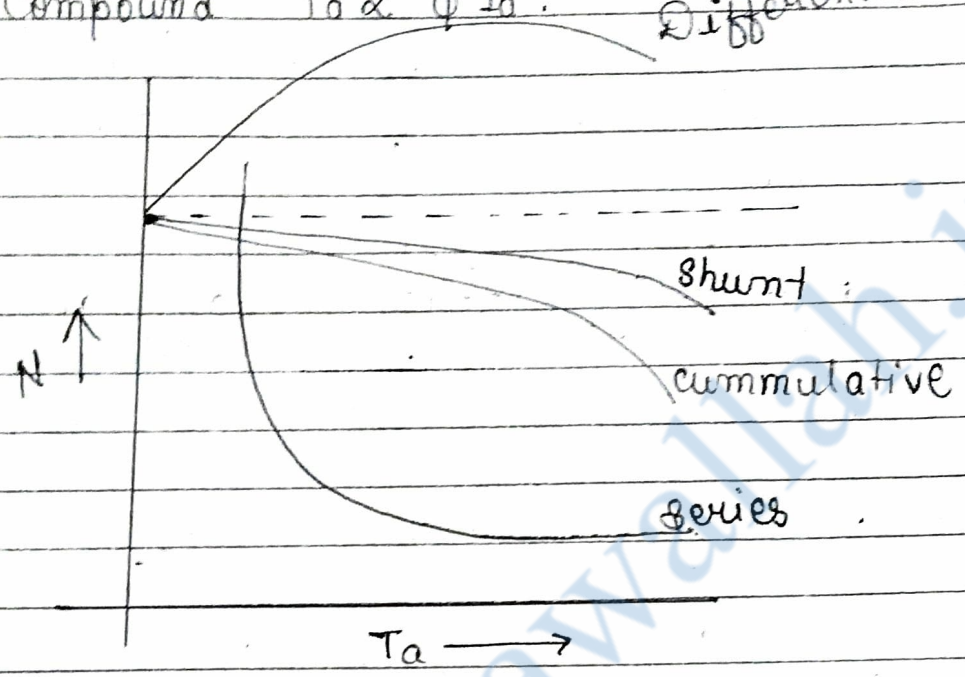 Compound Ta α φ Ia.
shunt :
N ↑
cummulative
series
Ta →